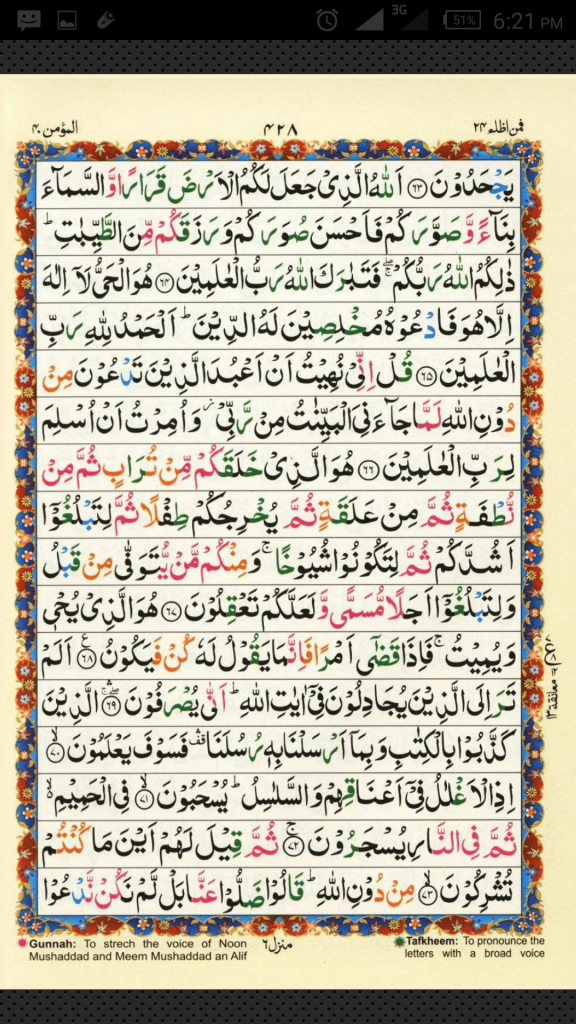 3G 51% 6:21 PM
فمن اظلم ٢٤ ٤٢٨ المؤمن ٤٠
يَجْحَدُوْنَ ﴿٦٣﴾ اَللّٰهُ الَّذِىْ جَعَلَ لَكُمُ الْاَرْضَ قَرَارًا وَّالسَّمَآءَ
بِنَآءً وَّصَوَّرَكُمْ فَاَحْسَنَ صُوَرَكُمْ وَرَزَقَكُمْ مِّنَ الطَّيِّبٰتِ ؕ
ذٰلِكُمُ اللّٰهُ رَبُّكُمْ ۖۚ فَتَبٰرَكَ اللّٰهُ رَبُّ الْعٰلَمِيْنَ ﴿٦٤﴾ هُوَ الْحَىُّ لَاۤ اِلٰهَ
اِلَّا هُوَ فَادْعُوْهُ مُخْلِصِيْنَ لَهُ الدِّيْنَ ؕ اَلْحَمْدُ لِلّٰهِ رَبِّ
الْعٰلَمِيْنَ ﴿٦٥﴾ قُلْ اِنِّىْ نُهِيْتُ اَنْ اَعْبُدَ الَّذِيْنَ تَدْعُوْنَ مِنْ
دُوْنِ اللّٰهِ لَمَّا جَآءَنِىَ الْبَيِّنٰتُ مِنْ رَّبِّىْ ؗ وَاُمِرْتُ اَنْ اُسْلِمَ
لِرَبِّ الْعٰلَمِيْنَ ﴿٦٦﴾ هُوَ الَّذِىْ خَلَقَكُمْ مِّنْ تُرَابٍ ثُمَّ مِنْ
نُّطْفَةٍ ثُمَّ مِنْ عَلَقَةٍ ثُمَّ يُخْرِجُكُمْ طِفْلًا ثُمَّ لِتَبْلُغُوْۤا
اَشُدَّكُمْ ثُمَّ لِتَكُوْنُوْا شُيُوْخًا ۚ وَمِنْكُمْ مَّنْ يُّتَوَفّٰى مِنْ قَبْلُ
وَلِتَبْلُغُوْۤا اَجَلًا مُّسَمًّى وَّلَعَلَّكُمْ تَعْقِلُوْنَ ﴿٦٧﴾ هُوَ الَّذِىْ يُحْىٖ
وَيُمِيْتُ ۚ فَاِذَا قَضٰٓى اَمْرًا فَاِنَّمَا يَقُوْلُ لَهٗ كُنْ فَيَكُوْنُ ﴿٦٨﴾ اَلَمْ
تَرَ اِلَى الَّذِيْنَ يُجَادِلُوْنَ فِىْۤ اٰيٰتِ اللّٰهِ ؕ اَنّٰى يُصْرَفُوْنَ ﴿٦٩﴾ الَّذِيْنَ
كَذَّبُوْا بِالْكِتٰبِ وَبِمَاۤ اَرْسَلْنَا بِهٖ رُسُلَنَا ۛ فَسَوْفَ يَعْلَمُوْنَ ﴿٧٠﴾
اِذِ الْاَغْلٰلُ فِىْۤ اَعْنَاقِهِمْ وَالسَّلٰسِلُ ؕ يُسْحَبُوْنَ ﴿٧١﴾ فِى الْحَمِيْمِ
ثُمَّ فِى النَّارِ يُسْجَرُوْنَ ﴿٧٢﴾ ثُمَّ قِيْلَ لَهُمْ اَيْنَ مَا كُنْتُمْ
تُشْرِكُوْنَ ﴿٧٣﴾ مِنْ دُوْنِ اللّٰهِ ؕ قَالُوْا ضَلُّوْا عَنَّا بَلْ لَّمْ نَكُنْ نَّدْعُوْا
معانقة ١٣
منزل ٦
Gunnah: To strech the voice of Noon
Mushaddad and Meem Mushaddad an Alif
Tafkheem: To pronounce the
letters with a broad voice